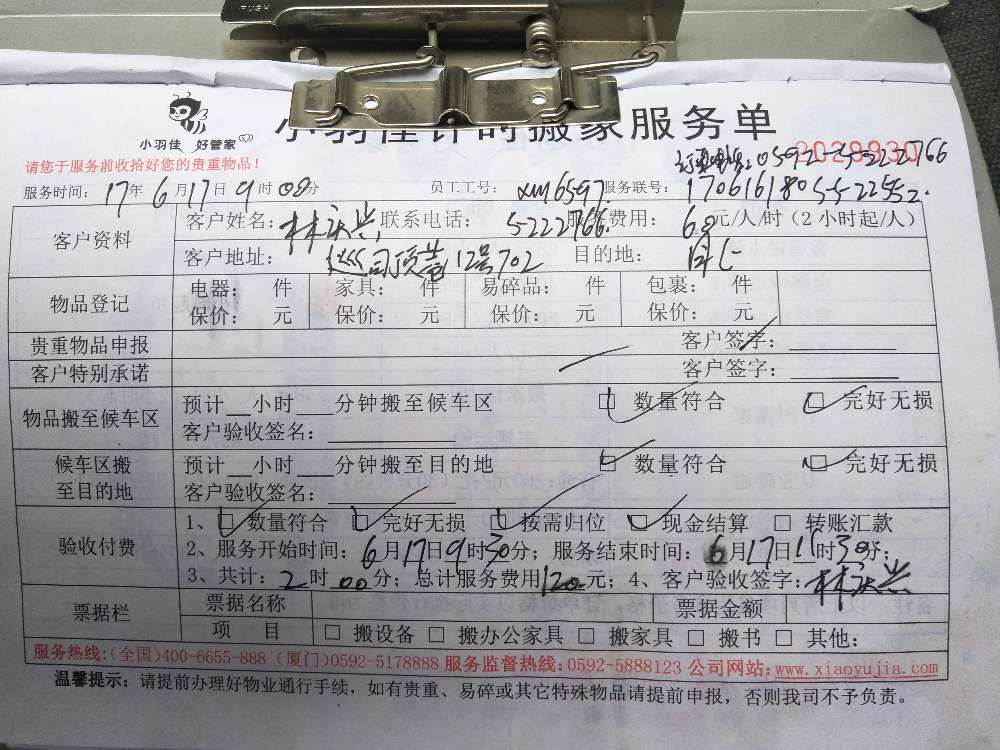 PUSH
小羽佳 好管家
小羽佳计时搬家服务单
请您于服务前收拾好您的贵重物品！
0592-5-222766
2029930
服务时间：17年6月17日9时00分 员工工号：XM6597 服务联号：170616180 5-5-22552.
客户资料 客户姓名：林 联系电话：5-222766 费用：68元/人/时（2小时起/人）
客户地址：巡司顶巷12号702 目的地：
物品登记 电器： 件 家具： 件 易碎品： 件 包裹： 件
保价： 元 保价： 元 保价： 元 保价： 元
贵重物品申报 客户签字：
客户特别承诺 客户签字：
物品搬至候车区 预计__小时___分钟搬至候车区 数量符合 完好无损
客户验收签名：
候车区搬至目的地 预计__小时___分钟搬至目的地 数量符合 完好无损
客户验收签名：
验收付费 1、数量符合 完好无损 按需归位 现金结算 转账汇款
2、服务开始时间：6月17日9时30分；服务结束时间：6月17日11时30分；
3、共计：2时00分；总计服务费用120元；4、客户验收签字：林
票据栏 票据名称 票据金额
项 目 搬设备 搬办公家具 搬家具 搬书 其他：
服务热线：(全国)400-6655-888 (厦门)0592-5178888 服务监督热线：0592-5888123 公司网站：www.xiaoyujia.com
温馨提示：请提前办理好物业通行手续，如有贵重、易碎或其它特殊物品请提前申报，否则我司不予负责。